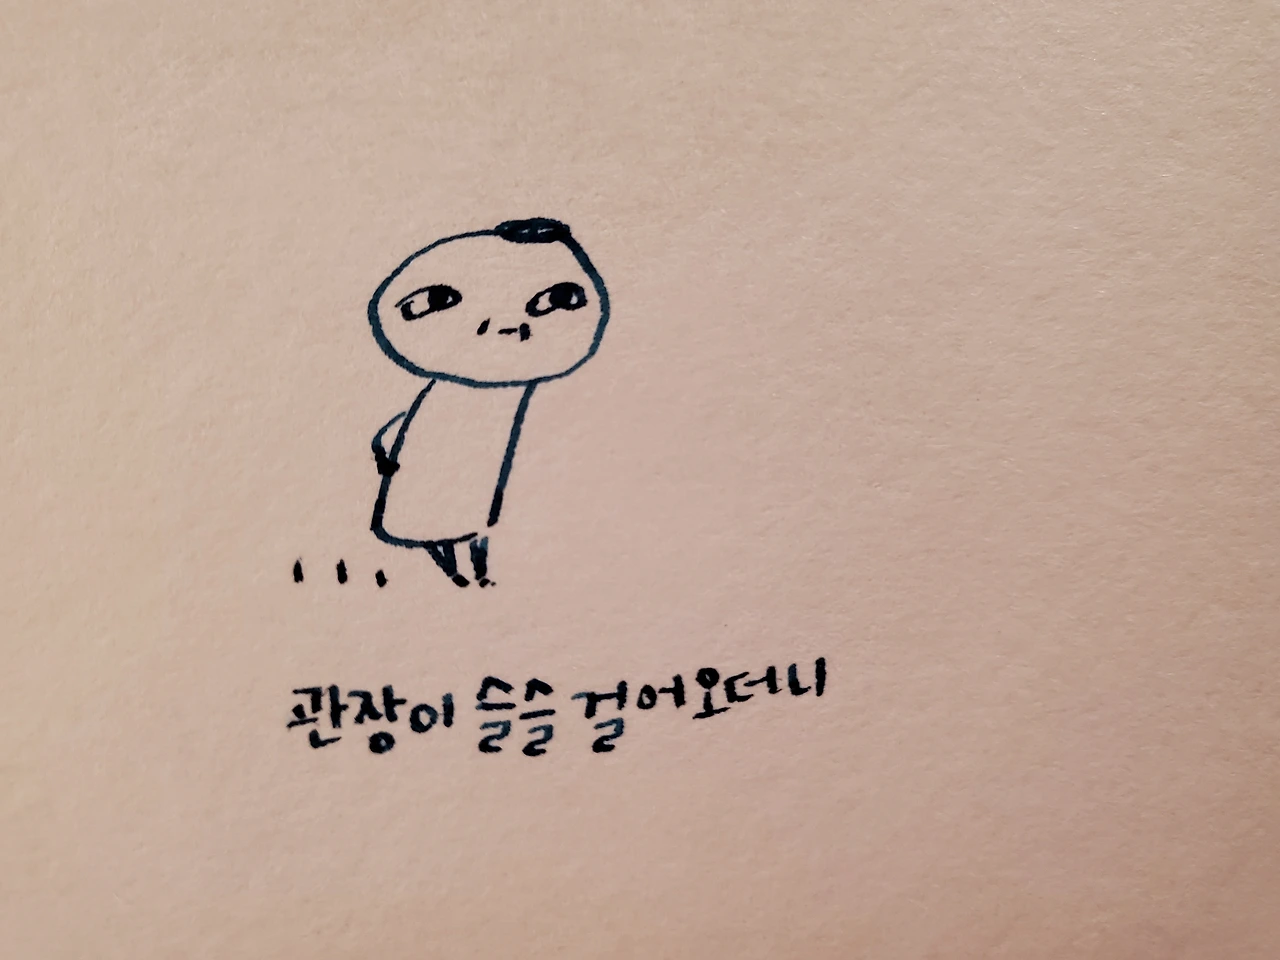 관장이 슬슬 걸어오더니